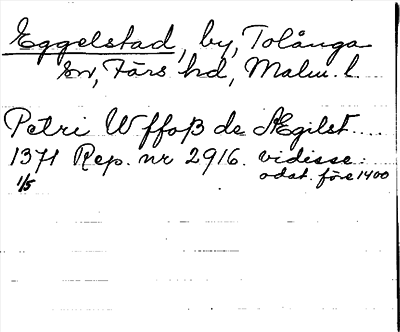 Eggelstad, by, Tolånga
sn, Färs hd, Malm. l.
Petri Uffoß de Ægilst....
1371 Rep. nr 2916. vidisse.
1/5 odat. före 1400